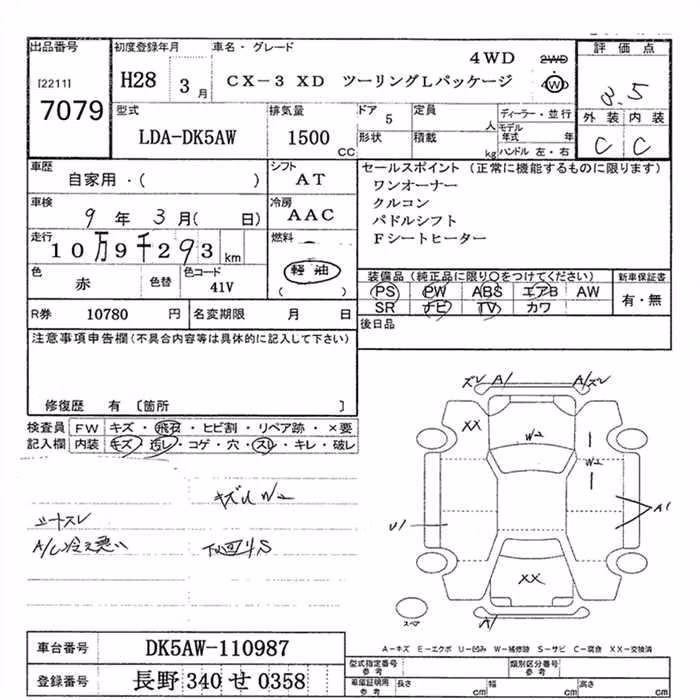 出品番号
[2211]
7079
初度登録年月
H28 3月
車名・グレード
4WD 2WD
CX-3 XD ツーリングLパッケージ 4WD
評価点
3.5
外装 内装
C C
型式
LDA-DK5AW
排気量
1500
CC
ドア 5
形状
定員 人
積載 kg
ディーラー・並行
モデル年式 年
ハンドル 左・右
車歴
自家用・( )
シフト
AT
車検
9年 3月( 日)
冷房
AAC
走行
10万9千293 km
燃料
軽油
( )
色
赤
色替
色コード
41V
R券 10780 円
名変期限 月 日
セールスポイント(正常に機能するものに限ります)
ワンオーナー
クルコン
パドルシフト
Fシートヒーター
装備品(純正品に限り○をつけてください)
PS PW ABS エアB AW
SR ナビ TV カワ
新車保証書
有・無
後日品
注意事項申告欄(不具合内容等は具体的に記入して下さい)
修復歴 有 〔箇所 〕
検査員 FW キズ・飛石・ヒビ割・リペア跡・×要
記入欄 内装 キズ・汚レ・コゲ・穴・スレ・キレ・破レ
キズレ W2
シートスレ
A/C冷え悪い
下回りS
ズレ A1 A/ズレ
XX
W2
W2
A1
U1
XX
A1
スペア
A-キズ E-エクボ U-凹み W-補修跡 S-サビ C-腐食 XX-交換済
車台番号 DK5AW-110987
登録番号 長野 340 せ 0358
型式指定番号
参考
類別区分番号
参考
車庫証明用
参考
長さ cm
幅 cm
高さ cm